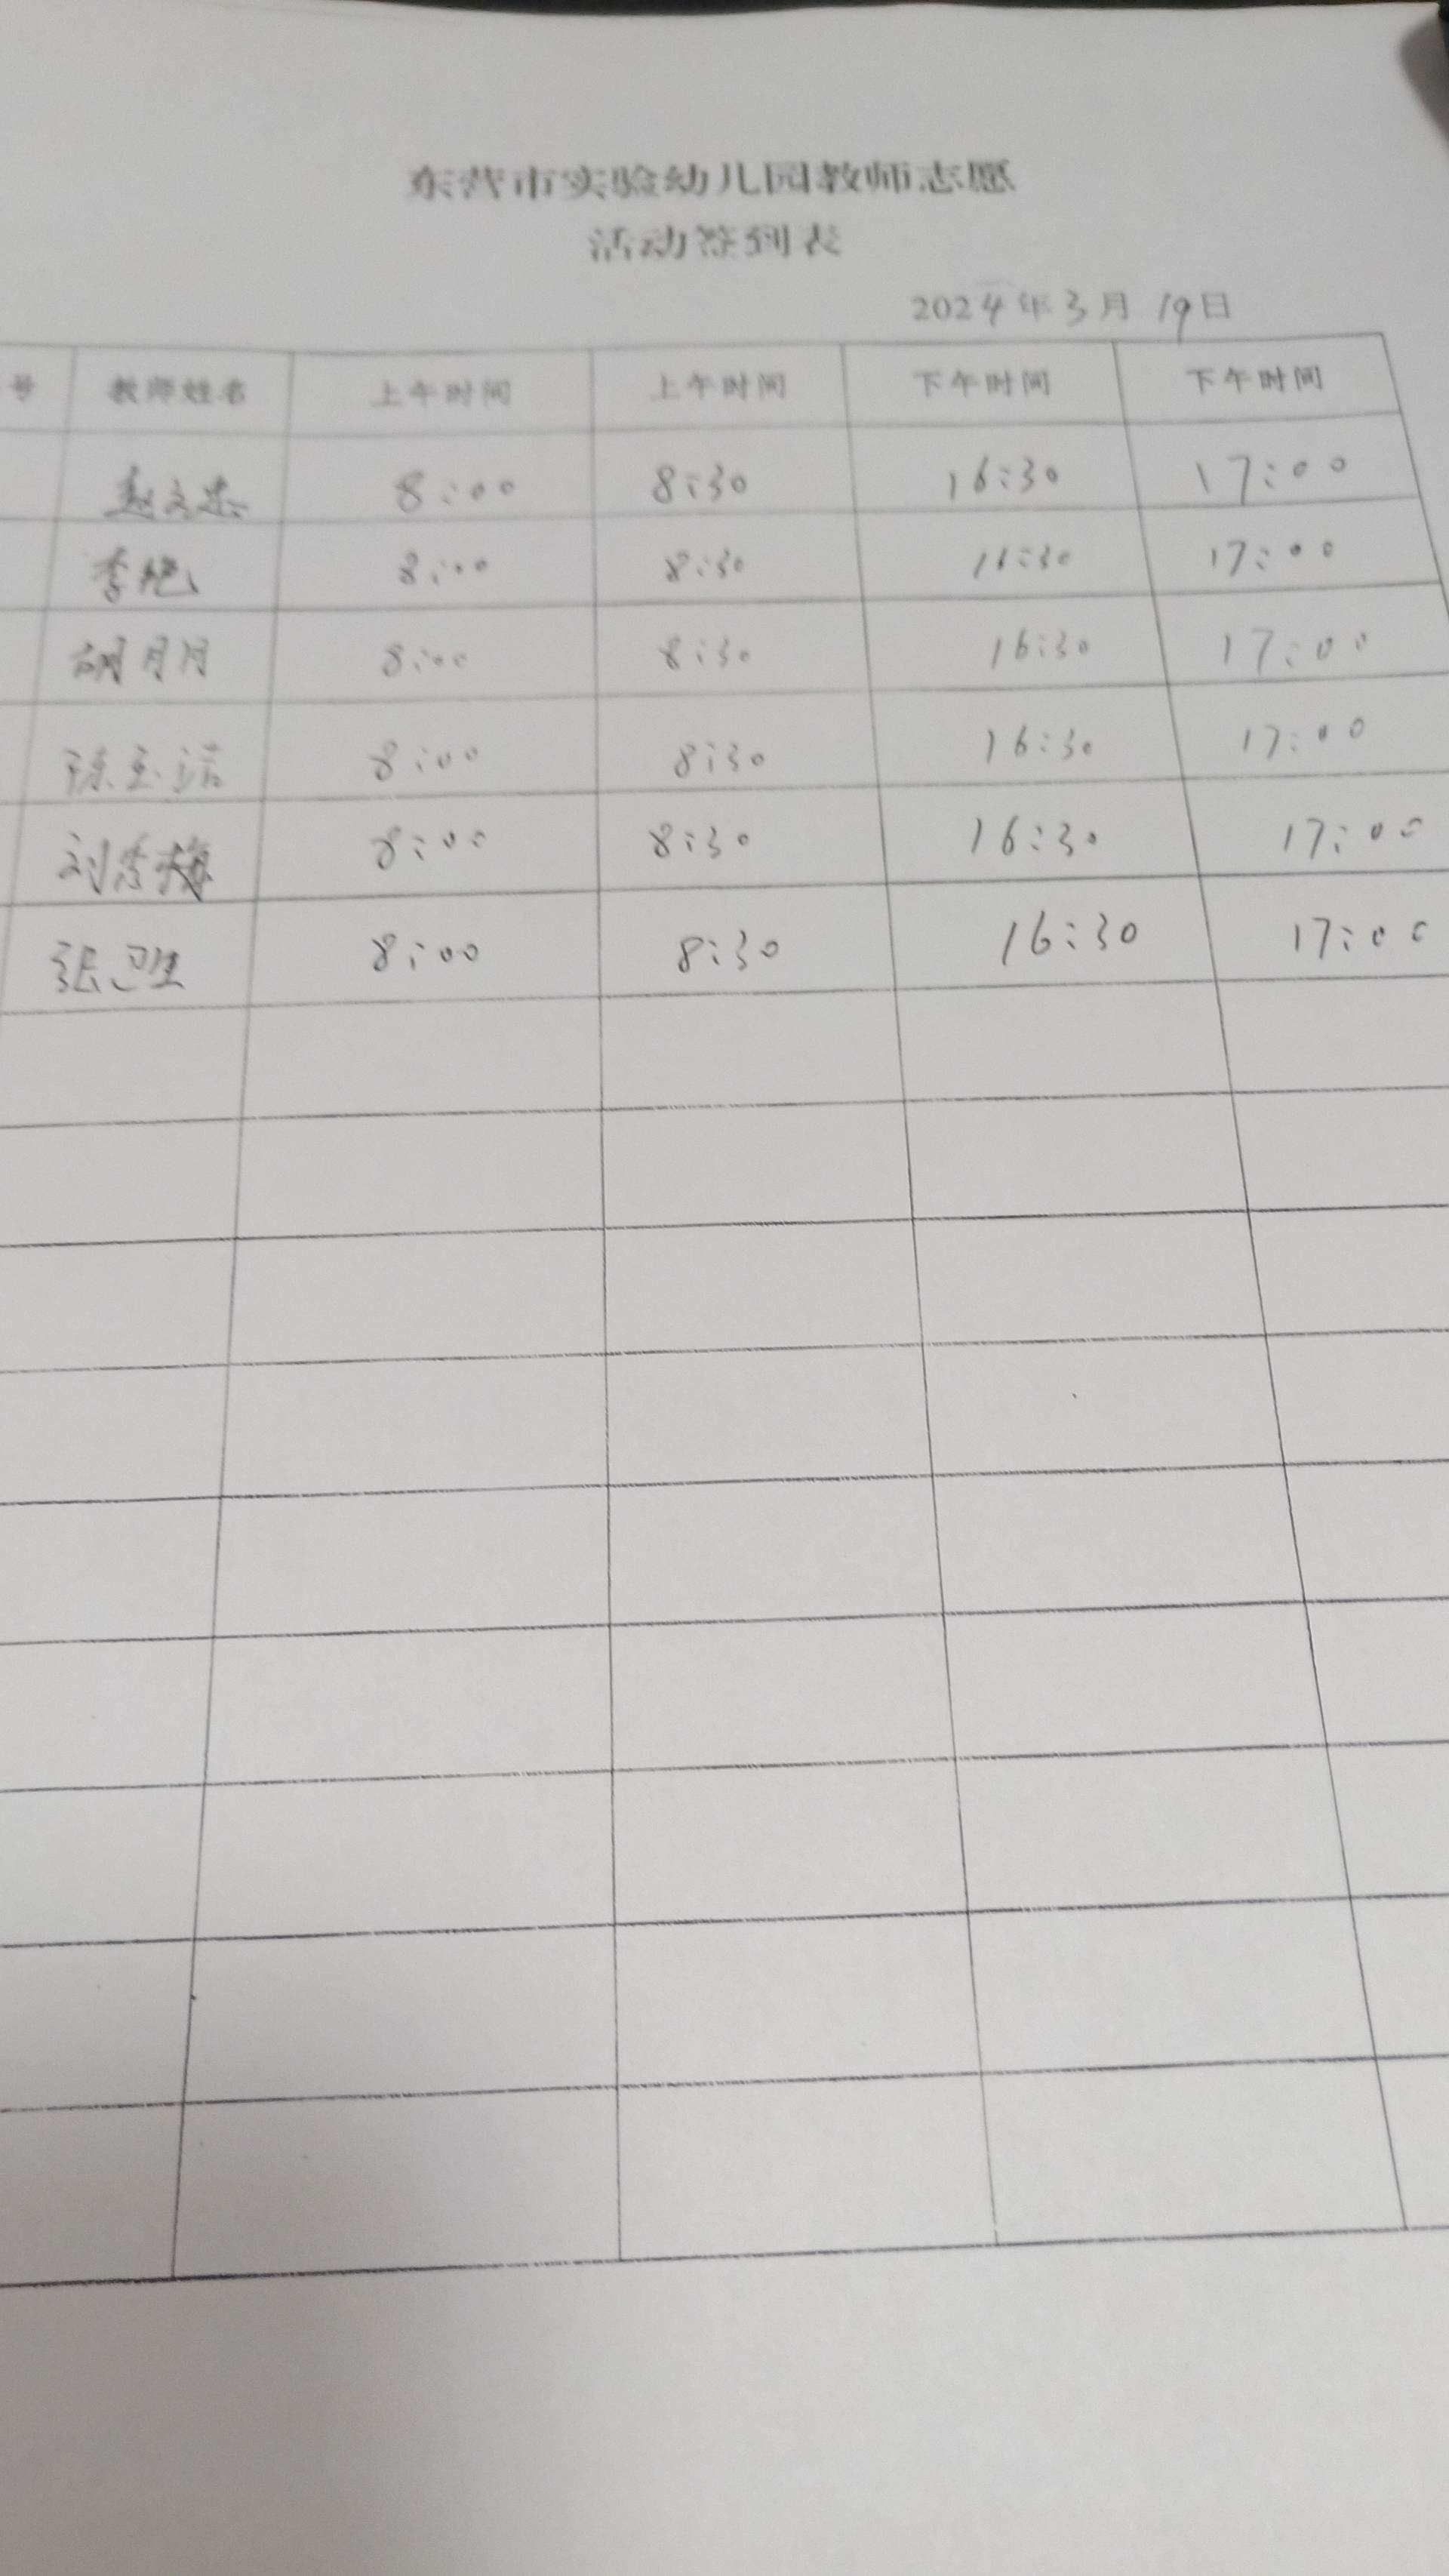 东营市实验幼儿园教师志愿
活动签到表
2024年3月19日
号 教师姓名 上午时间 上午时间 下午时间 下午时间
8:00 8:30 16:30 17:00
李艳 8:00 8:30 16:30 17:00
胡月月 8:00 8:30 16:30 17:00
8:00 8:30 16:30 17:00
刘秀梅 8:00 8:30 16:30 17:00
张卫生 8:00 8:30 16:30 17:00